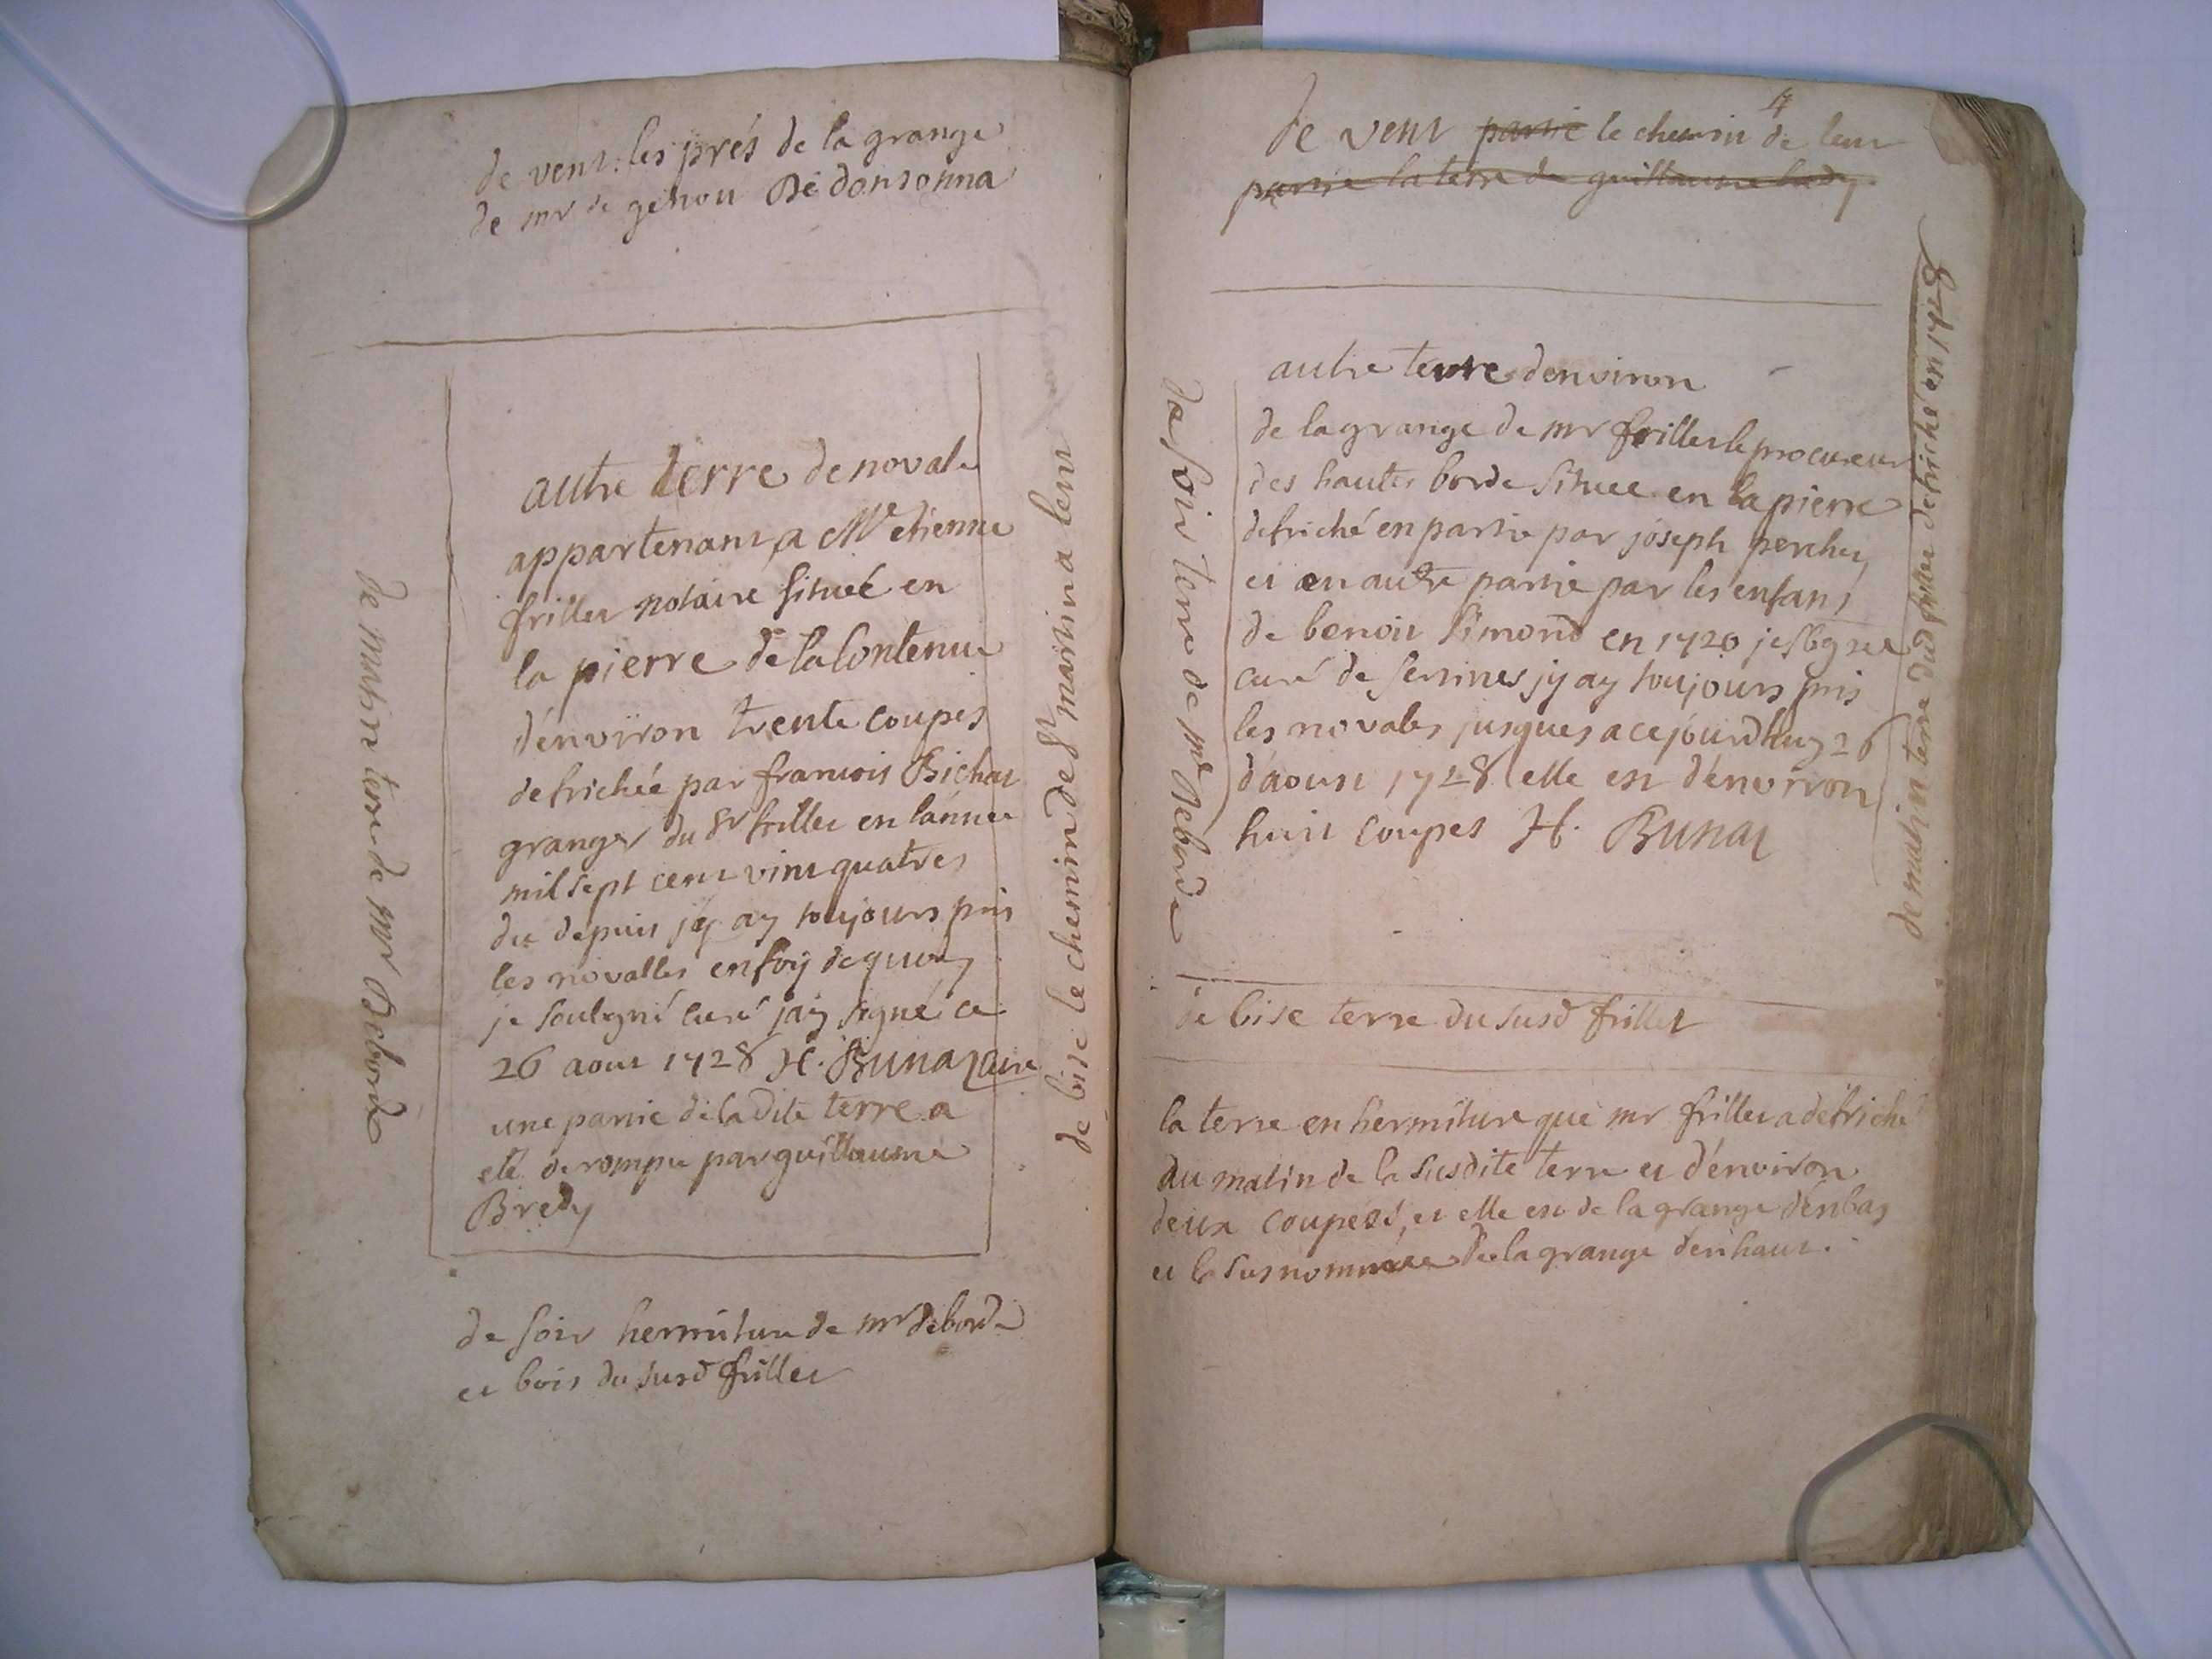 de vent les prés de la grange
de mr de genou De donsonna
de matin terre de mr Deborde
autre terre de novale
appartenant a Mr etienne
frillet notaire située en
la pierre de la Contenue
d'enviïron trente coupes
defrichée par francois Bichat
granger du Sr frillet en lánnee
mil sept cent vint quatres
du depuis jÿ ay toujours pris
les novalles en foÿ de quoy
je soubsigné curé jay signé ce
26 aout 1728 H. Bunaz curé
une partie de ladite terre a
eté derompu par guillaume
Bredy
de bise le chemin de St martin a leur
de soir hermiture de mr deborde
et bois du susd frillet
17
de vent partie le chemin de leur
partie la terre de guillaume bredy
de soir terre de mr Deborde
autre terre d'environ
de la grange de mr frillet le procureur
des hautes borde située en la pierre
defriché en partie par joseph perchet
et en autre partie par les enfans
de benoit Simond en 1720 je sbgne
curé de sermes jy ay toujours pris
les novales jusques a cejourdhuy 26
d'aoust 1728 elle est d'environ
huit coupes H. Bunaz
de matin terre dud frillet defriché en 1728
de bise terre du susd frillet
la terre en hermiture que mr frillet a defriché
du matin de la susdite terre et d'environ
deux coupées, et elle est de la grange d'enbas
et la susnommée de la grange d'en haut.